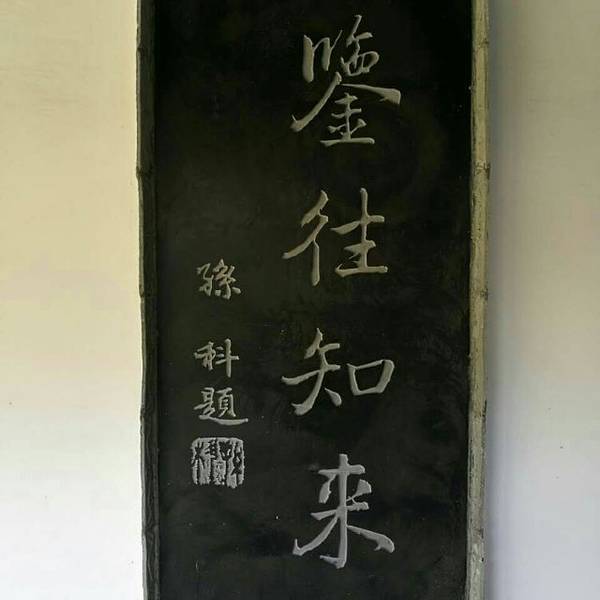 鑒往知来
孫科題